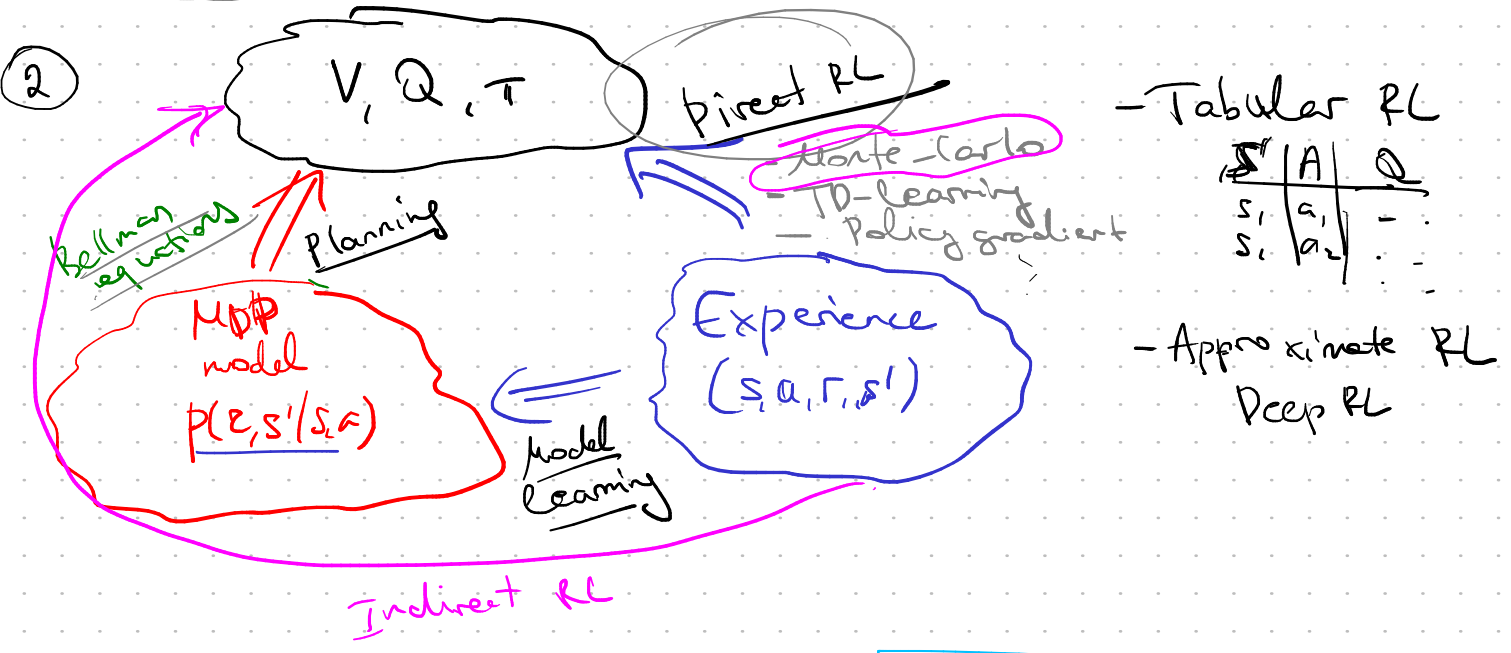 2
V, Q, π
Direct RL
- Monte-Carlo
- TD-learning
- Policy gradient
Bellman
equations
Planning
MDP
model
p(r,s'/s,a)
Experience
(s,a,r,s')
Model
Learning
Indirect RL
- Tabular RL
S A Q
s₁ a₁ -
s₁ a₂
- Approximate RL
Deep RL